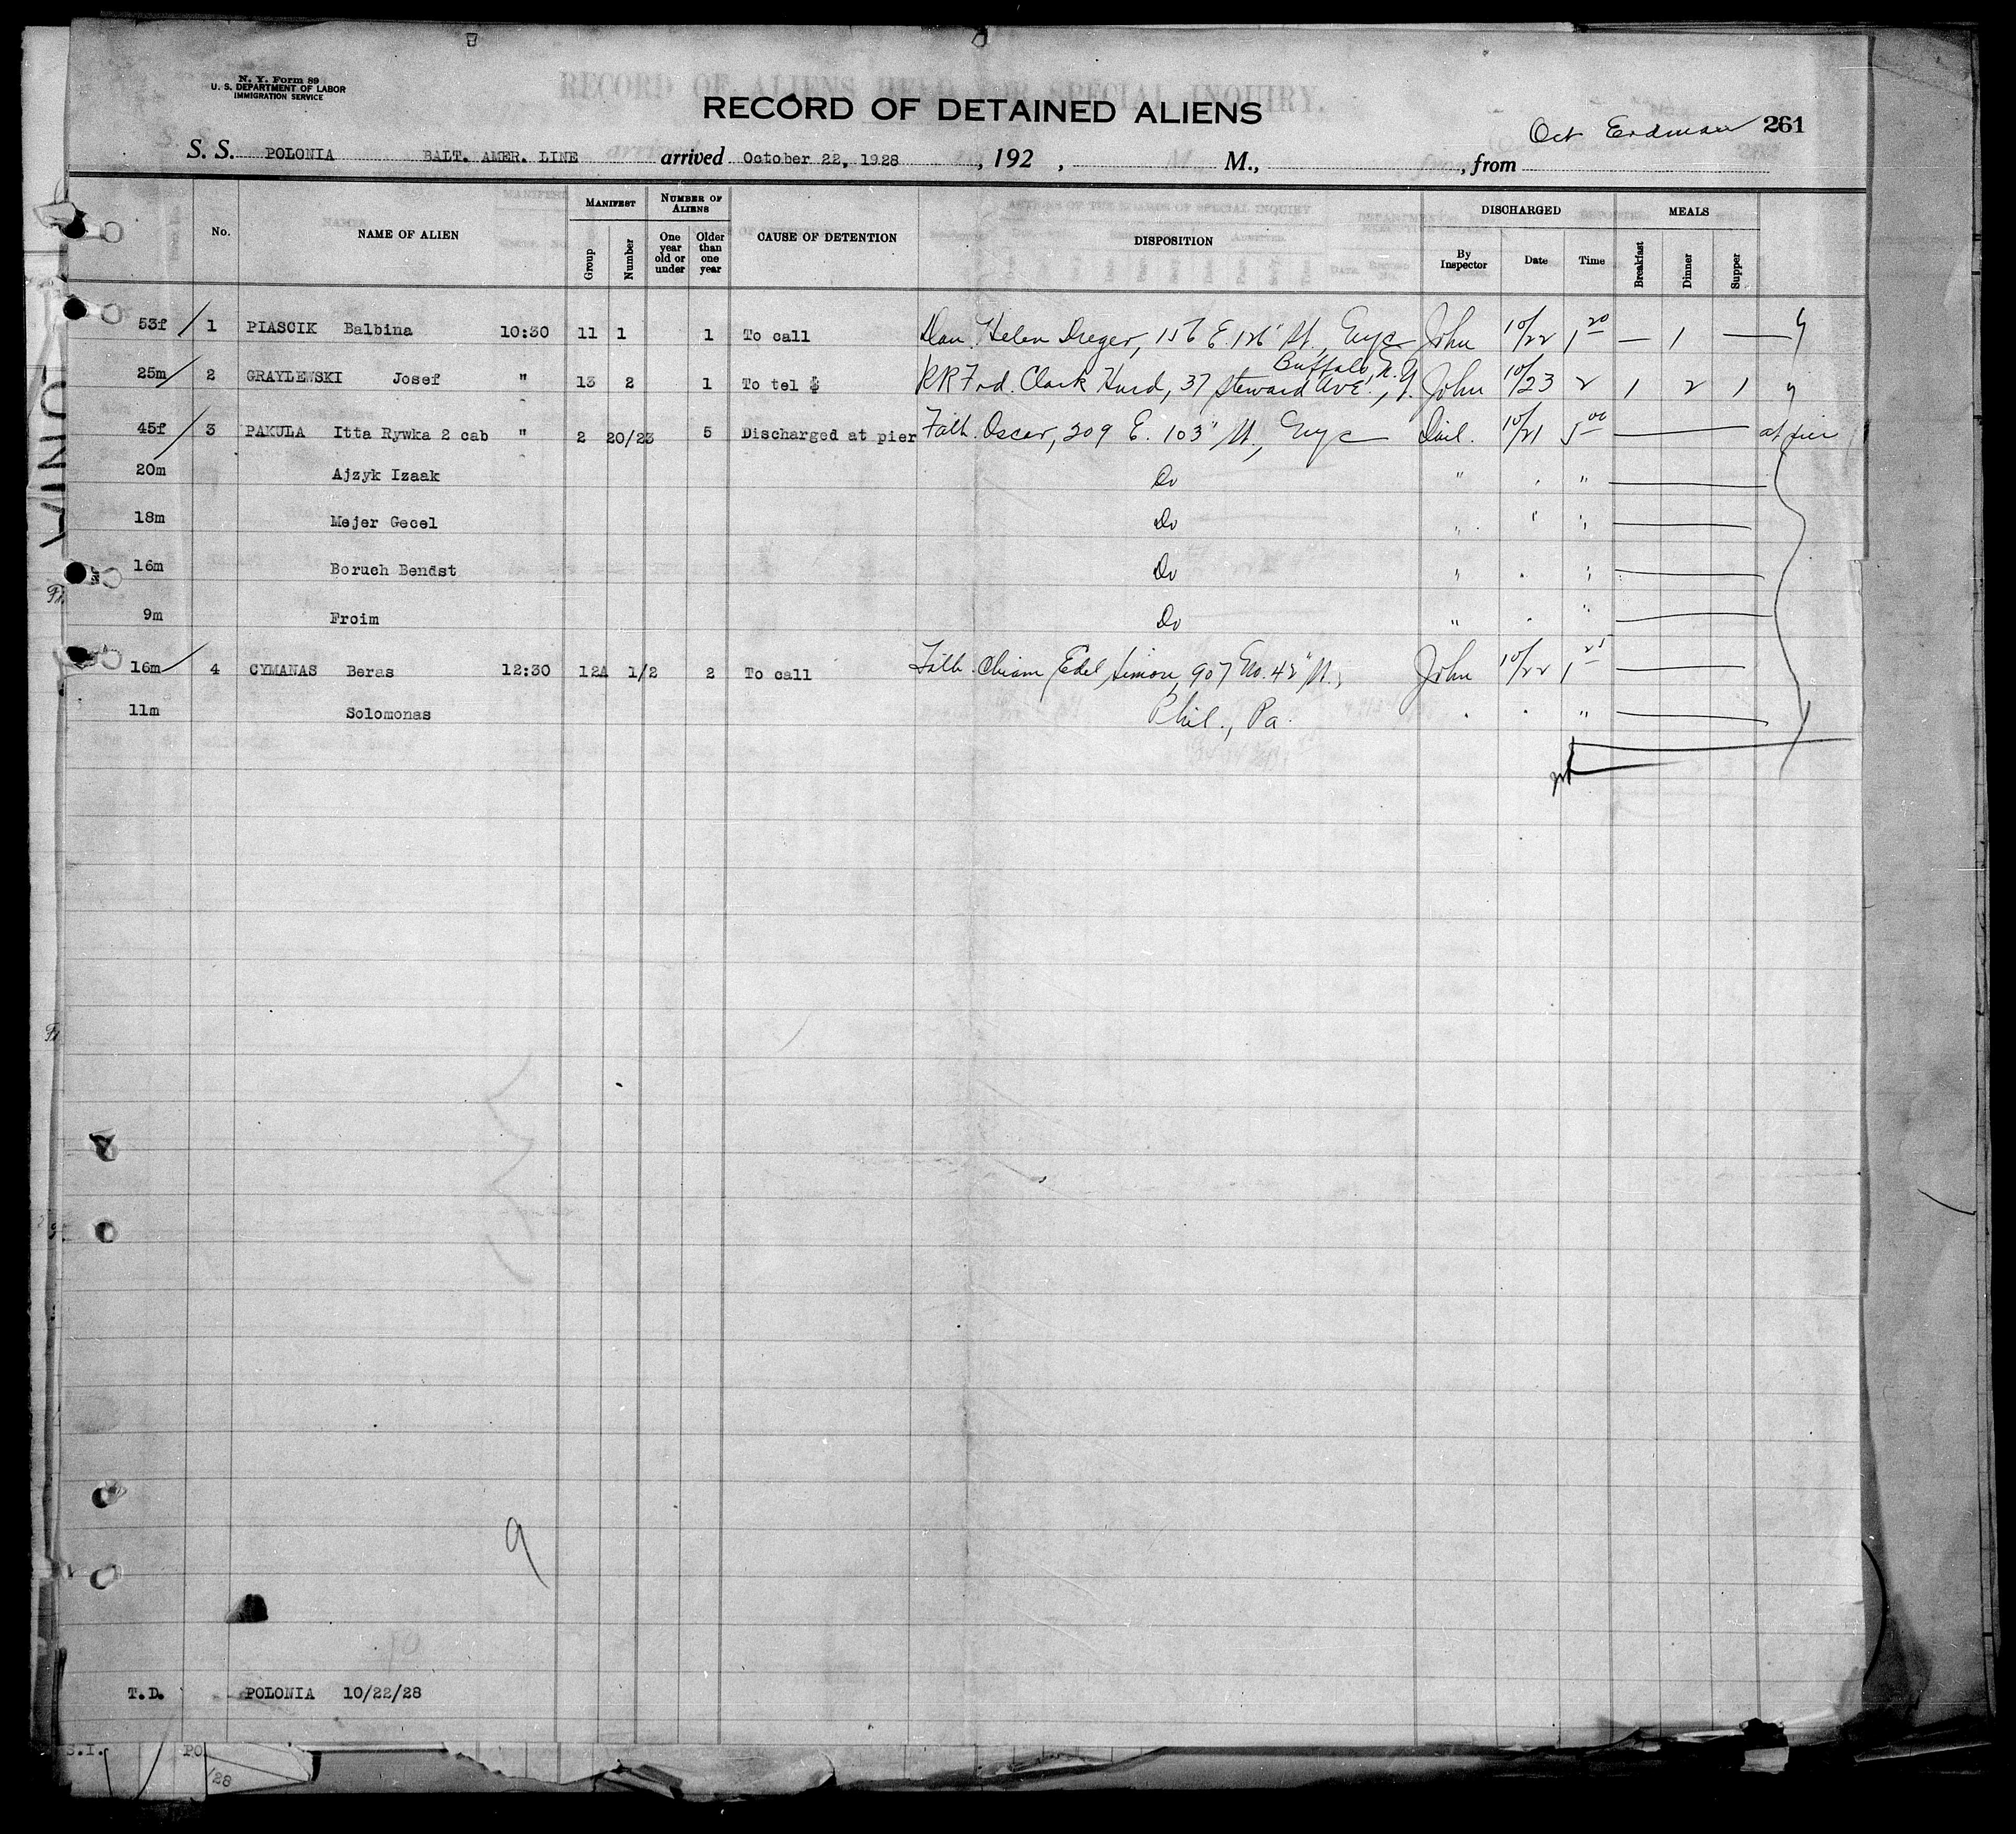 N. Y. Form 89
U. S. DEPARTMENT OF LABOR
IMMIGRATION SERVICE
RECORD OF ALIENS HELD FOR SPECIAL INQUIRY.
RECORD OF DETAINED ALIENS
Oct Erdman 261
S. S. POLONIA BALT. AMER. LINE arrived October 22, 1928, 192 , M., , from
No. NAME OF ALIEN MANIFEST Group Number NUMBER OF ALIENS One year old or under Older than one year CAUSE OF DETENTION DISPOSITION DISCHARGED By Inspector Date Time MEALS Breakfast Dinner Supper
53f 1 PIASCIK Balbina 10:30 11 1 1 To call Dau. Helen Dreger, 156 E. 126" St., Nyc John 10/22 1 20 — 1 —
Buffalo, N.Y.
25m 2 GRAYLEWSKI Josef " 13 2 1 To tel $ RR Frd. Clark Hurd, 37 Steward Ave., John 10/23 2 1 2 1
45f 3 PAKULA Itta Rywka 2 cab " 2 20/23 5 Discharged at pier Fath. Oscar, 209 E. 103" St., Nyc 10/21 5 00 at pier
20m Ajzyk Izaak Do " " "
18m Mejer Gecel Do " " "
16m Boruch Bendst Do " " "
9m Froim Do " " "
16m 4 CYMANAS Beras 12:30 12A 1/2 2 To call Fath. Edel Simon, 907 No. 42" St., John 10/22 1 25
11m Solomonas Phil., Pa. " " "
9
10
T.D. POLONIA 10/22/28
S.I. PO
/28